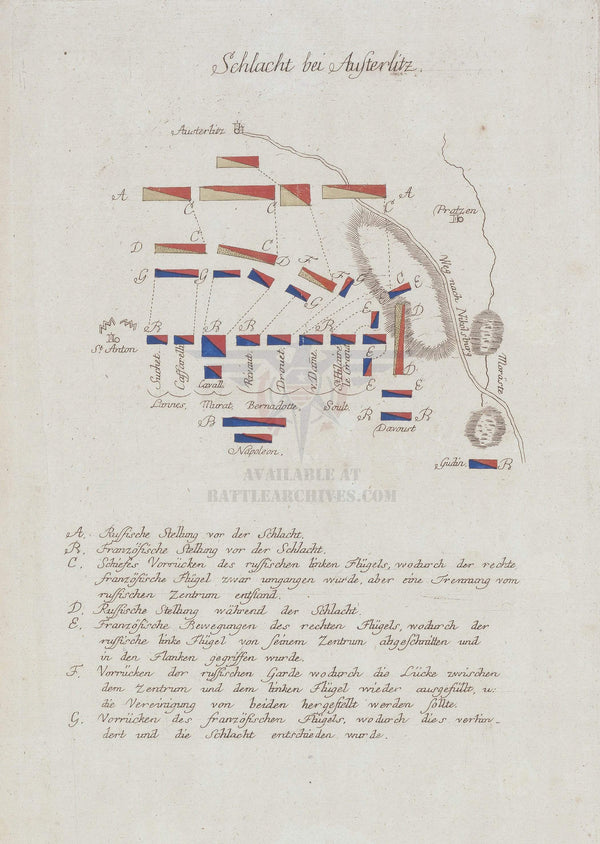 Schlacht bei Austerlitz.
Austerlitz
A
A
C
C
C
Pratzen
D
C
C
D
F
F
G
G
G
C
E
Weg nach Nikolsburg
D
E
St. Anton
B
B
B
B
B
B
E
D
E
Moräste
Suchet
Caffarelli
Cavall.
Rivaut
Drouet
v. Dam̄e
St. Hilaire
le Grand
Lannes,
Murat,
Bernadotte,
Soult,
B
B
B
B
(Davoust
Napoleon.
Gudin.
B
AVAILABLE AT
BATTLEARCHIVES.COM
A. Russische Stellung vor der Schlacht.
B. Französische Stellung vor der Schlacht.
C. Schiefes Vorrücken des russischen linken Flügels, wodurch der rechte
französische Flügel zwar umgangen wurde, aber eine Trennung vom
russischen Zentrum entstand.
D. Russische Stellung während der Schlacht.
E. Französische Bewegungen des rechten Flügels, wodurch der
russische linke Flügel von seinem Zentrum abgeschnitten und
in den Flanken gegriffen wurde.
F. Vorrücken der russischen Garde wodurch die Lücke zwischen
dem Zentrum und dem linken Flügel wieder ausgefüllt, u:
die Vereinigung von beiden hergestellt werden sollte.
G. Vorrücken des französischen Flügels, wodurch dies verhin-
dert und die Schlacht entschieden wurde.